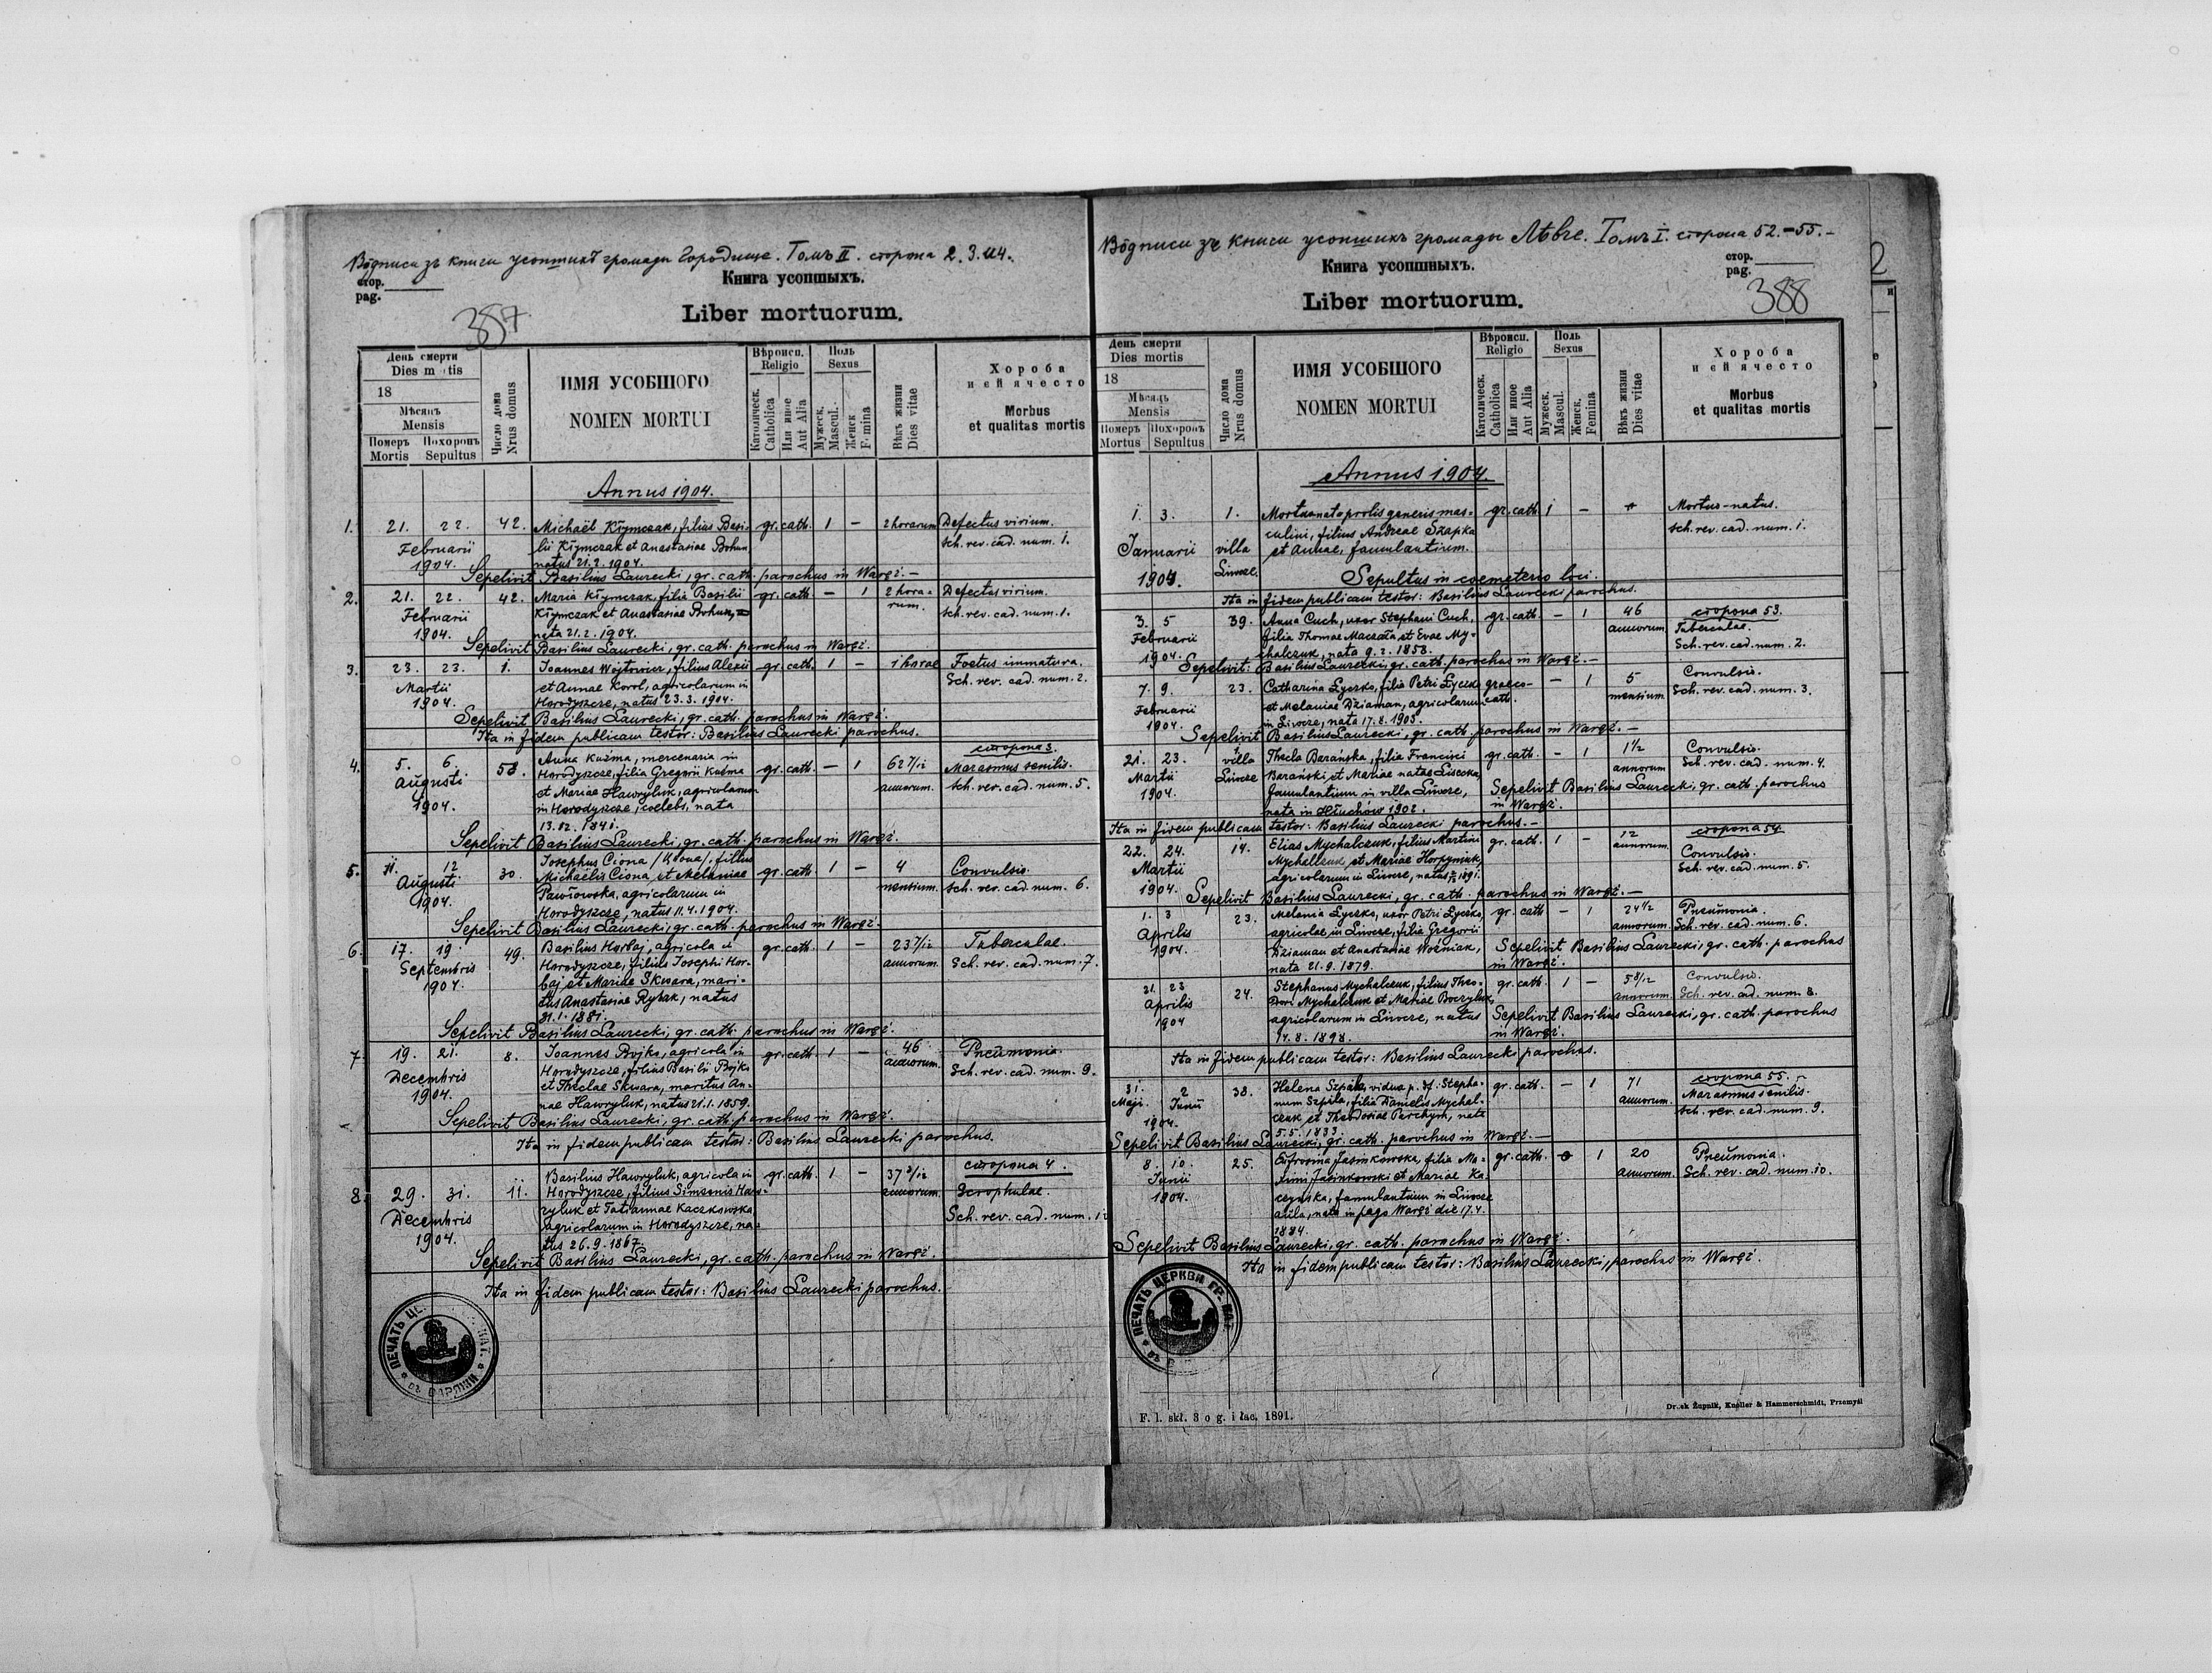 Вôдписи зъ книги усопших громади Городище. Томъ II. сторона 2. 3. и 4.
стор.
pag.
387
Книга усопшыхъ.
Liber mortuorum.
День смерти
Dies mortis
18
Мѣсяцъ
Mensis
Померъ Похоронъ
Mortis Sepultus
Число дома
Nrus domus
ИМЯ УСОБШОГО
NOMEN MORTUI
Вѣроисп.
Religio
Католическ.
Catholica
Или иное
Aut Alia
Поль
Sexus
Мужеск.
Mascul.
Женск
Femina
Вѣкъ жизни
Dies vitae
Хороба
и еи ячесто
Morbus
et qualitas mortis
Annus 1904.
1. 21. 22. 42. Michaël Klymczak, filius Basi- gr. cath. 1 – 2 horarum Defectus virium.
Februarii lii Klymczak et Anastasiae Bohun sch. rev. cad. num. 1.
1904. natus 21.2.1904.
Sepelivit Basilius Laurecki, gr. cath. parochus in Waręż. –
2. 21. 22. 42. Maria Klymczak, filia Basilii gr. cath. – 1 2 hora- Defectus virium.
Februarii Klymczak et Anastasiae Bohun, rum. sch. rev. cad. num. 1.
1904. nata 21.2.1904.
Sepelivit Basilius Laurecki, gr. cath. parochus in Waręż.
3. 23. 23. 1. Joannes Wojtowicz, filius Alexii gr. cath. 1 – 1 horae Foetus immatura.
Martii et Annae Korol, agricolarum in Sch. rev. cad. num. 2.
1904. Horodyszcze, natus 23.3.1904.
Sepelivit Basilius Laurecki, gr. cath. parochus in Waręż.
Ita in fidem publicam testor: Basilius Laurecki parochus.
сторона 3.
4. 5. 6. 58. Anna Kuźma, mercenaria in gr. cath. – 1 62 7/12 Marasmus senilis.
Augusti Horodyszcze, filia Gregorii Kuźma annorum. sch. rev. cad. num. 5.
1904. et Mariae Hawryluk, agricolarum
in Horodyszcze, coelebs, nata
13.12.1841.
Sepelivit Basilius Laurecki, gr. cath. parochus in Waręż.
5. 11. 12 30. Josephus Ciona /Kiona/, filius gr. cath. 1 – 4 Convulsio.
Augusti Michaëlis Ciona, et Melaniae mensium. sch. rev. cad. num. 6.
1904. Pawłowska, agricolarum in
Horodyszcze, natus 11.4.1904.
Sepelivit Basilius Laurecki, gr. cath. parochus in Waręż.
6. 17. 19. 49. Basilius Horbaj, agricola in gr. cath. 1 – 23 7/12 Tuberculae.
Septembris Horodyszcze, filius Josephi Hor- annorum. Sch. rev. cad. num. 7.
1904. baj et Mariae Skwara, mari-
tus Anastasiae Rybak, natus
31.1.1881.
Sepelivit Basilius Laurecki, gr. cath. parochus in Waręż.
7. 19. 21. 8. Joannes Bojko, agricola in gr. cath. 1 – 46 Pneumonia.
Decembris Horodyszcze, filius Basilii Bojko annorum. Sch. rev. cad. num. 9.
1904. et Theclae Skwara, maritus An-
nae Hawryluk, natus 21.1.1859.
Sepelivit Basilius Laurecki, gr. cath. parochus in Waręż.
Ita in fidem publicam testor: Basilius Laurecki parochus.
сторона 4.
8. 29. 31. 11. Basilius Hawryluk, agricola in gr. cath. 1 – 37 3/12 Scrophulae.
Decembris Horodyszcze, filius Simeonis Haw- annorum. Sch. rev. cad. num.
1904. ryluk et Tatiannae Kaczkowska
agricolarum in Horodyszcze, na-
tus 26.9.1867.
Sepelivit Basilius Laurecki, gr. cath. parochus in Waręż.
Ita in fidem publicam testor: Basilius Laurecki parochus.
ПЕЧАТЬ
Вôдписи зъ книги усопших громады Лѣвче. Томъ I. сторона 52.–55.–
Книга усопшныхъ.
Liber mortuorum.
стор.
pag.
388
День смерти
Dies mortis
18
Мѣсяць
Mensis
Померъ Похоронъ
Mortus Sepultus
Число дома
Nrus domus
ИМЯ УСОБШОГО
NOMEN MORTUI
Вѣроисп.
Religio
Католическ.
Catholica
Или иное
Aut Alia
Поль
Sexus
Мужеск.
Mascul.
Женск.
Femina
Вѣкъ жизни
Dies vitae
Хороба
и еи ячесто
Morbus
et qualitas mortis
Annus 1904.
1. 3. 1. Mortuonato prolis generis mas- gr. cath 1 – Mortus-natus.
Januarii villa culini, filius Andreae Szapka sch. rev. cad. num. 1.
1904. Liwcze. et Annae, famulantium.
Sepultus in coemeterio loci.
Ita in fidem publicam testor: Basilius Laurecki parochus.
сторона 53.
3. 5 39. Anna Cuch, uxor Stephani Cuch, gr. cath. – 1 46 Tuberculae.
Februarii filia Thomae Maczała et Evae My- annorum Sch. rev. cad. num. 2.
1904. chalczuk, nata 9.2.1858.
Sepelivit: Basilius Laurecki, gr. cath. parochus in Waręż. –
7. 9. 23. Catharina Łyczko, filia Petri Łyczko graeco- – 1 5 Convulsio.
Februarii et Melaniae Dziaman, agricolarum cath. mensium. Sch. rev. cad. num. 3.
1904. in Liwcze, nata 17.8.1903.
Sepelivit Basilius Laurecki, gr. cath. parochus in Waręż. –
21. 23. villa Thecla Barańska, filia Francisci gr. cath. – 1 1 1/2 Convulsio.
Martii Liwcze Barański et Mariae natae annorum Sch. rev. cad. num. 4.
1904. famulantium in villa Liwcze, Sepelivit Basilius Laurecki, gr. cath. parochus
nata in Hłuchów 1902. in Waręż.
Ita in fidem publicam testor: Basilius Laurecki parochus. –
сторона 54
22. 24. 14. Elias Mychalczuk, filius Martini gr. cath. 1 – 12 Convulsio.
Martii Mychalczuk et Mariae Horpyniuk, annorum. Sch. rev. cad. num. 5.
1904. agricolarum in Liwcze, natus 1891.
Sepelivit Basilius Laurecki, gr. cath. parochus in Waręż. –
1. 3 23. Melania Łyczko, uxor Petri Łyczko, gr. cath – 1 24 1/2 Pneumonia.
Aprilis agricolae in Liwcze, filia Gregorii annorum. Sch. rev. cad. num. 6.
1904. Dziaman et Anastasiae Woźniak, Sepelivit Basilius Laurecki, gr. cath. parochus
nata 21.9.1879. in Waręż.
21. 23 24. Stephanus Mychalczuk, filius Theo- gr. cath. 1 – 5 8/12 Convulsio.
Aprilis dori Mychalczuk et Mariae Boczyluk, annorum. Sch. rev. cad. num. 8.
1904 agricolarum in Liwcze, natus Sepelivit Basilius Laurecki, gr. cath. parochus
14.8.1898. in Waręż.
Ita in fidem publicam testor: Basilius Laurecki parochus.
сторона 55. –
31. 2 38. Helena Szpila, vidua p. df. Stepha- gr. cath. – 1 71 Marasmus senilis.
Maji. Junii num Szpila, filia Danielis Mychal- annorum. Sch. rev. cad. num. 9.
1904. czuk et Theodosiae Parchym, nata
5.5.1833.
Sepelivit Basilius Laurecki, gr. cath. parochus in Waręż. –
8. 10. 25. Eufrosina Jasinkowska, filia Ma- gr. cath. – 1 20 Pneumonia.
Junii ximi Jasinkowski et Mariae Ka- annorum. Sch. rev. cad. num. 10.
1904. czyńska, famulantium in Liwcze
aula, nata in pago Waręż die 17.4.
1884.
Sepelivit Basilius Laurecki, gr. cath. parochus in Waręż.
Ita in fidem publicam testor: Basilius Laurecki, parochus in Waręż.
ПЕЧАТЬ ЦЕРКВИ ГР. КАТ.
F. l. skł. 3 o g. i łac. 1891.
Druk Żupnik, Knoller & Hammerschmidt, Przemyśl